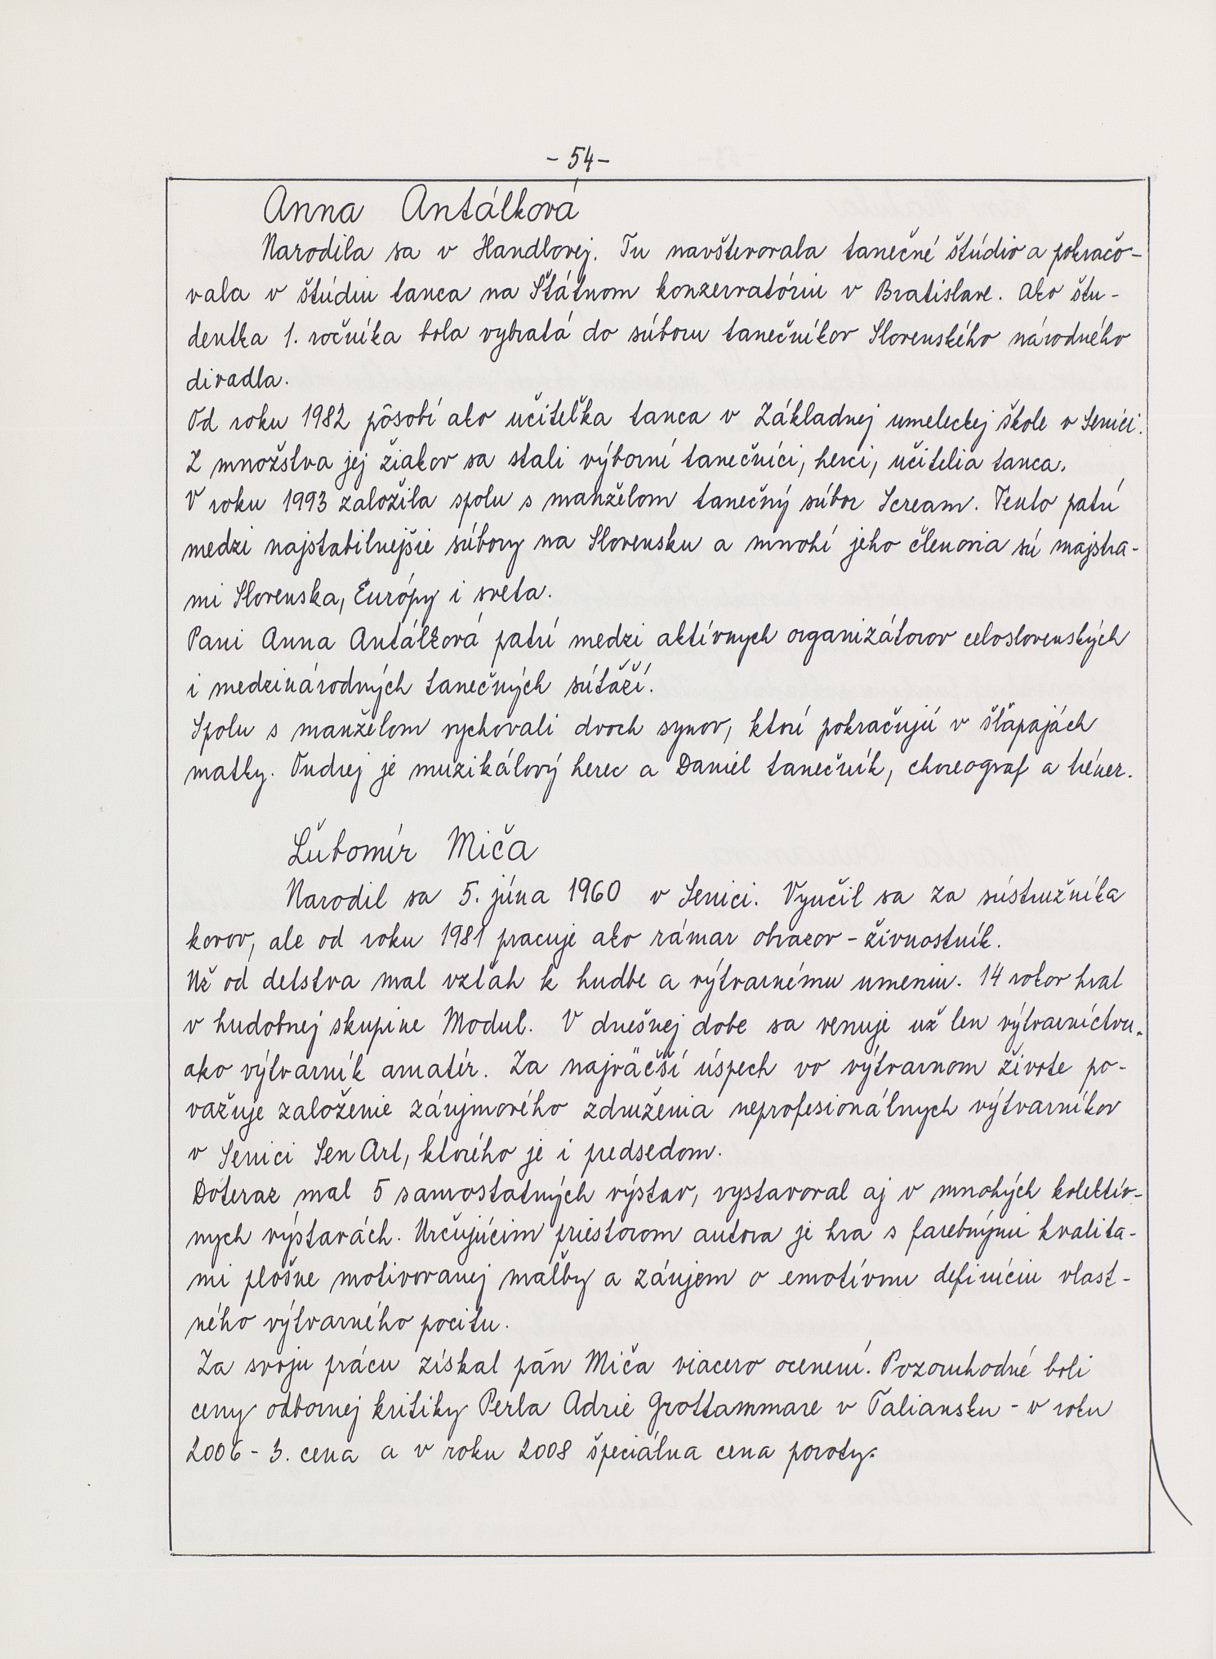 - 54 -
Anna Antálková
Narodila sa v Handlovej. Tu navštevovala tanečné štúdio a pokračo-
vala v štúdiu tanca na Štátnom konzervatóriu v Bratislave. Ako štu-
dentka 1. ročníka bola vybratá do súboru tanečníkov Slovenského národného
divadla.
Od roku 1982 pôsobí ako učiteľka tanca v Základnej umeleckej škole v Senici.
Z množstva jej žiakov sa stali výborní tanečníci, herci, učitelia tanca.
V roku 1993 založila spolu s manželom tanečný súbor Scream. Tento patrí
medzi najstabilnejšie súbory na Slovensku a mnohí jeho členovia sú majstra-
mi Slovenska, Európy i sveta.
Pani Anna Antálková patrí medzi aktívnych organizátorov celoslovenských
i medzinárodných tanečných súťaží.
Spolu s manželom vychovali dvoch synov, ktorí pokračujú v šľapajách
matky. Ondrej je muzikálový herec a Daniel tanečník, choreograf a tréner.
Ľubomír Miča
Narodil sa 5. júna 1960 v Senici. Vyučil sa za sústružníka
kovov, ale od roku 1981 pracuje ako rámar obrazov - živnostník.
Už od detstva mal vzťah k hudbe a výtvarnému umeniu. 14 rokov hral
v hudobnej skupine Modul. V dnešnej dobe sa venuje už len výtvarníctvu
ako výtvarník amatér. Za najväčší úspech vo výtvarnom živote po-
važuje založenie záujmového združenia neprofesionálnych výtvarníkov
v Senici Sen Art, ktorého je i predsedom.
Doteraz mal 5 samostatných výstav, vystavoval aj v mnohých kolektív-
nych výstavách. Určujúcim priestorom autora je hra s farebnými kvalita-
mi plošne motivovanej maľby a záujem o emotívnu definíciu vlast-
ného výtvarného pocitu.
Za svoju prácu získal pán Miča viacero ocenení. Pozoruhodné boli
ceny odbornej kritiky Perla Adrie Grottammare v Taliansku - v roku
2006 - 3. cena a v roku 2008 špeciálna cena poroty.